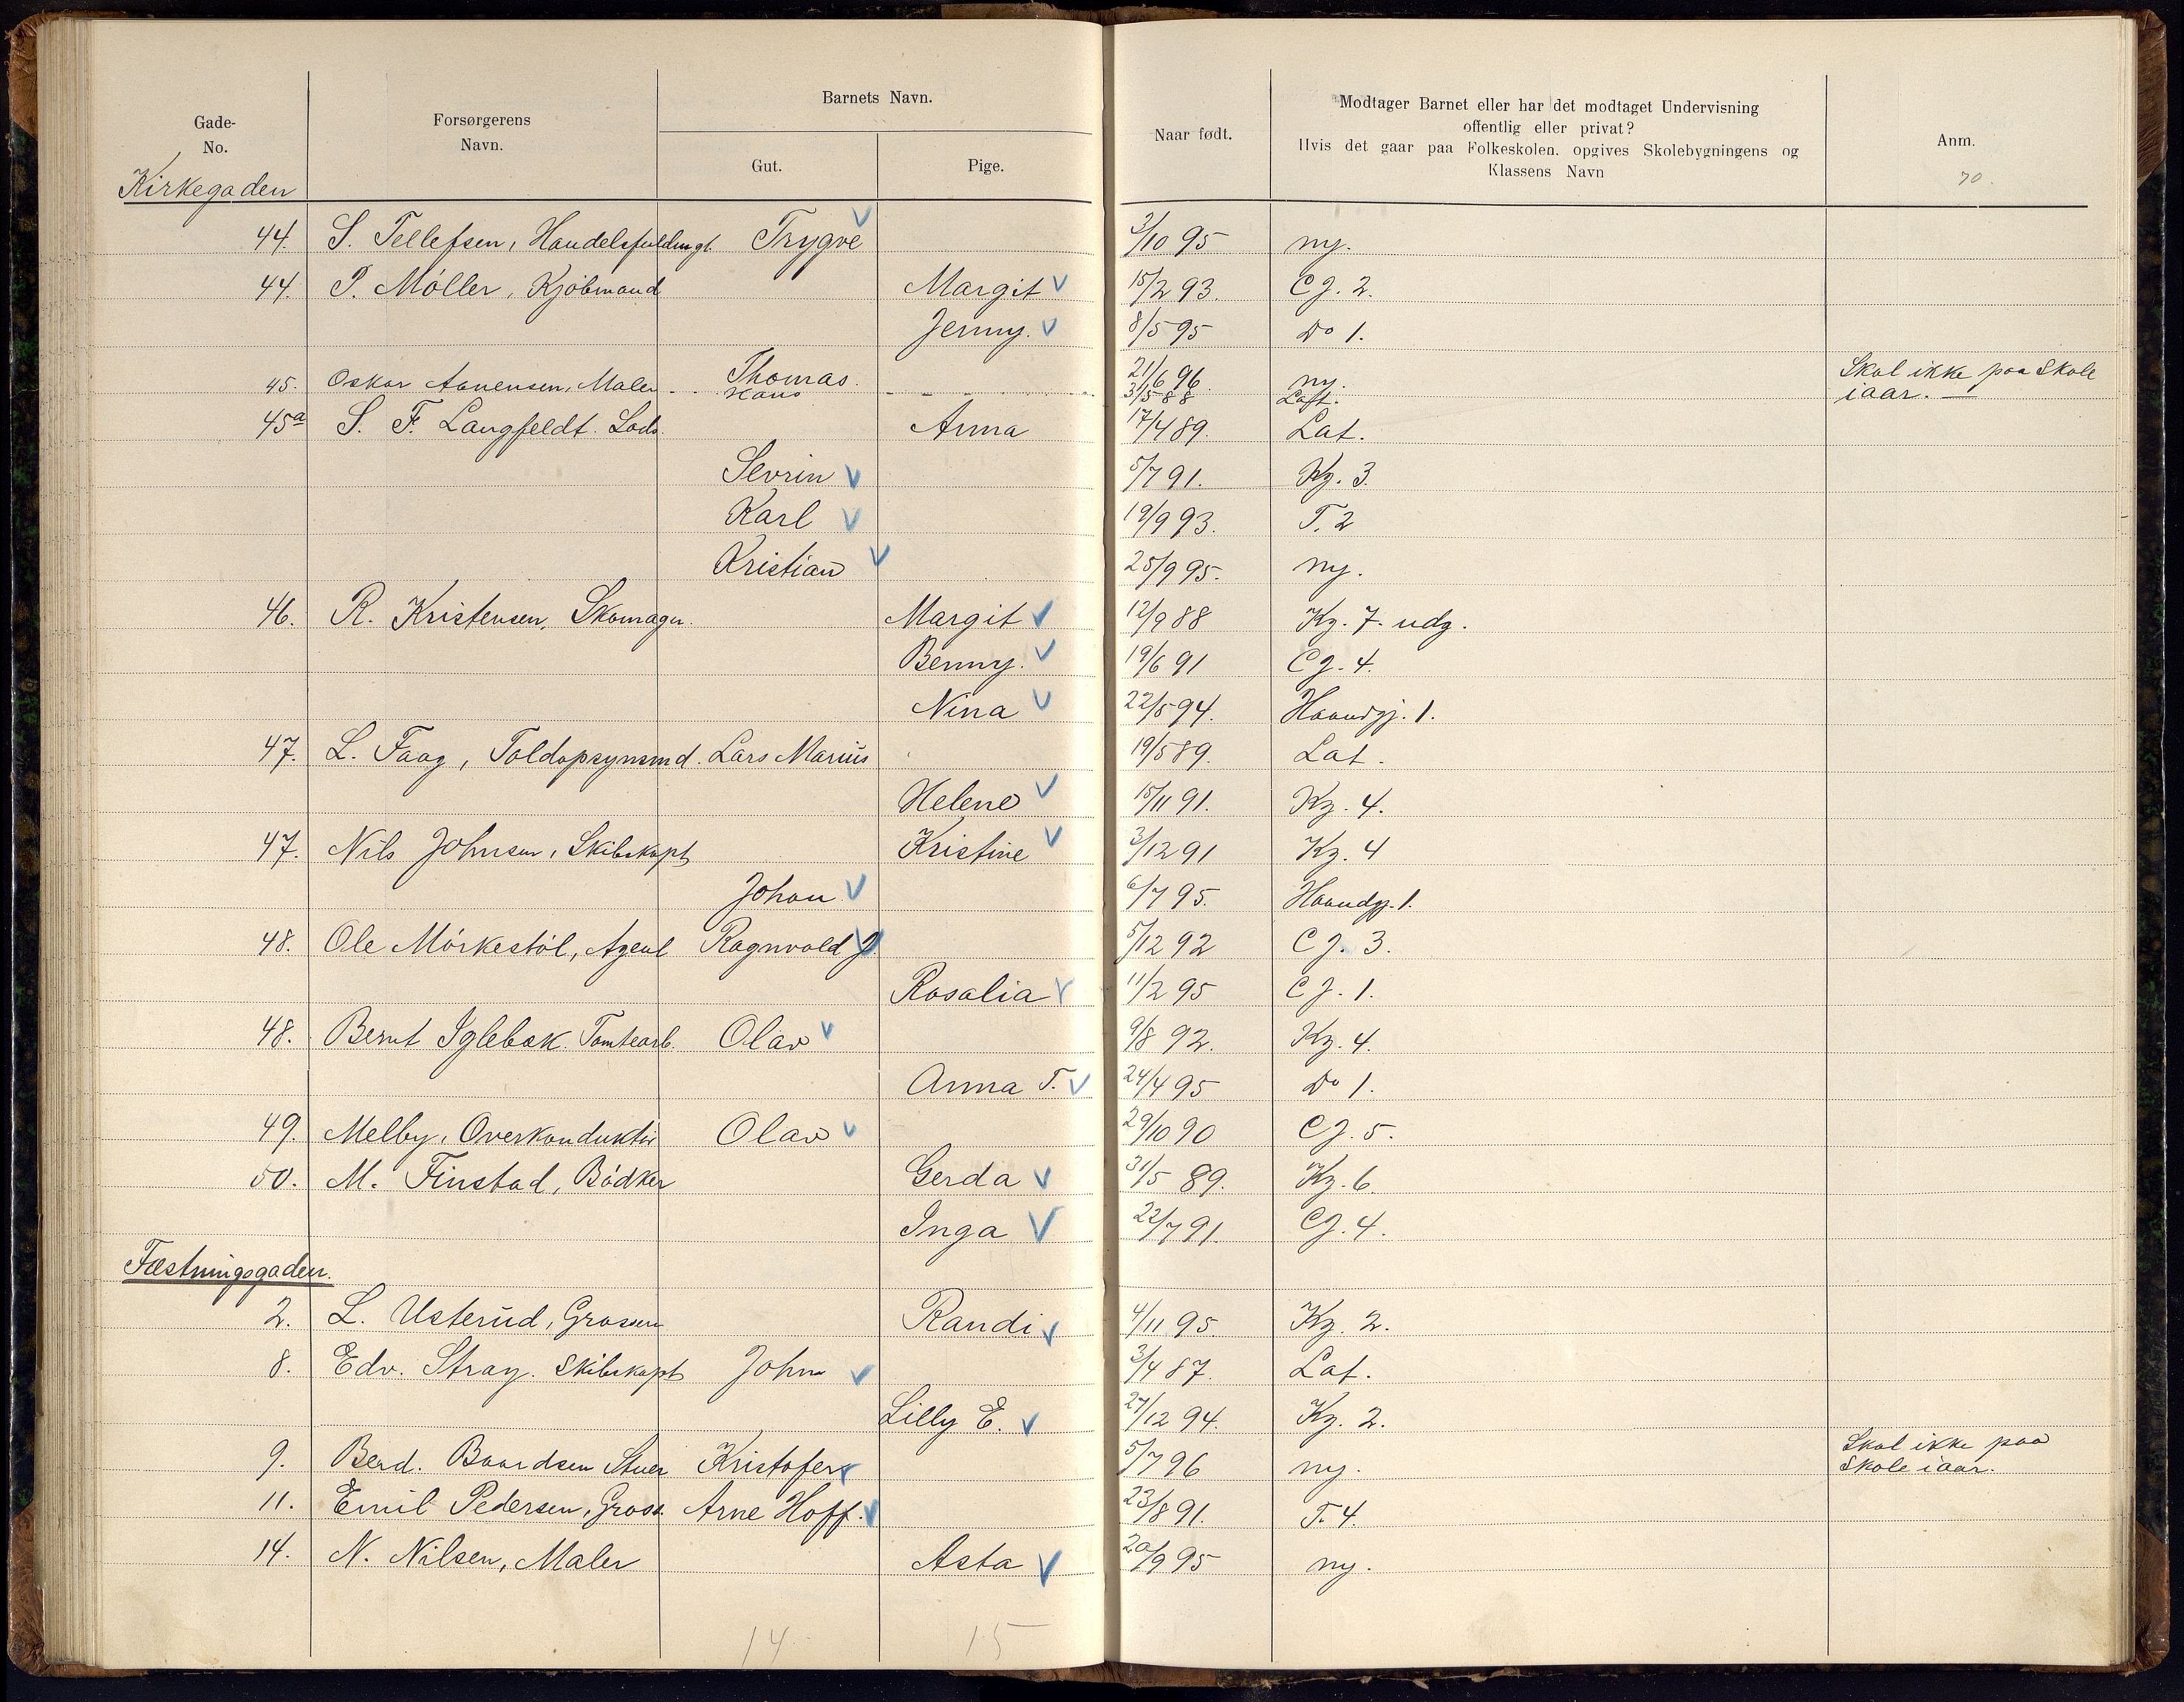 Gade-
No.
Forsørgerens
Navn.
Barnets Navn.
Gut.
Pige.
Naar født.
Modtager Barnet eller har det modtaget Undervisning
offentlig eller privat?
Hvis det gaar paa Folkeskolen, opgives Skolebygningens og
Klassens Navn
Anm.
70.
Kirkegaden
44. S. Tellefsen, Handelsfuldmgt. Trygve 3/10 95 ny.
44. P. Möller, Kjöbmand Margit 15/2 93. Cg. 2.
Jenny. 8/5 95 Do 1.
45. Oskar Aanensen, Maler Thomas. 21/6 96. ny. Skal ikke paa Skole
Hans 31/5 88 Laft. iaar. —
45a S. F. Langfeldt. Lods. Anna 17/4 89. Lat.
Sevrin 5/7 91. Kg. 3.
Karl 19/9 93. T. 2
Kristian 25/9 95. ny.
46. R. Kristensen, Skomager. Margit 12/9 88 Kg. 7. udg.
Benny. 19/6 91 Cg. 4.
Nina 22/5 94. Haandgj. 1.
47. L. Faag, Toldopsynsmd. Lars Marius 19/5 89. Lat.
Helene 15/11 91. Kg. 4.
47. Nils Johnsen, Skibskapt Kristine 3/12 91 Kg. 4
Johan 6/7 95. Haandgj. 1.
48. Ole Mörkestöl, Agent Ragnvald J. 5/12 92 Cg. 3.
Rosalia 11/2 95 Cg. 1.
48. Bernt Iglebæk. Tomtearb. Olav 9/8 92. Kg. 4.
Anna T. 24/4 95 Do 1.
49. Melby, Overkonduktör Olav 29/10 90 Cg. 5.
50. M. Finstad, Bödker Gerda 31/5 89. Kg. 6.
Inga 22/7 91. Cg. 4.
Fæstningsgaden.
2. L. Usterud, Grosserer Randi 4/11 95. Kg. 2.
8. Edv. Stray. Skibskapt John 3/4 87. Lat.
Lilly E. 27/12 94. Kg. 2.
9. Bernd. Baardsen Stuer Kristofer 5/7 96 ny. Skal ikke paa
Skole iaar.
11. Emil Pedersen, Gross. Arne Hoff. 23/8 91. T. 4.
14. N. Nilsen, Maler Asta 20/9 95 ny.
14 15